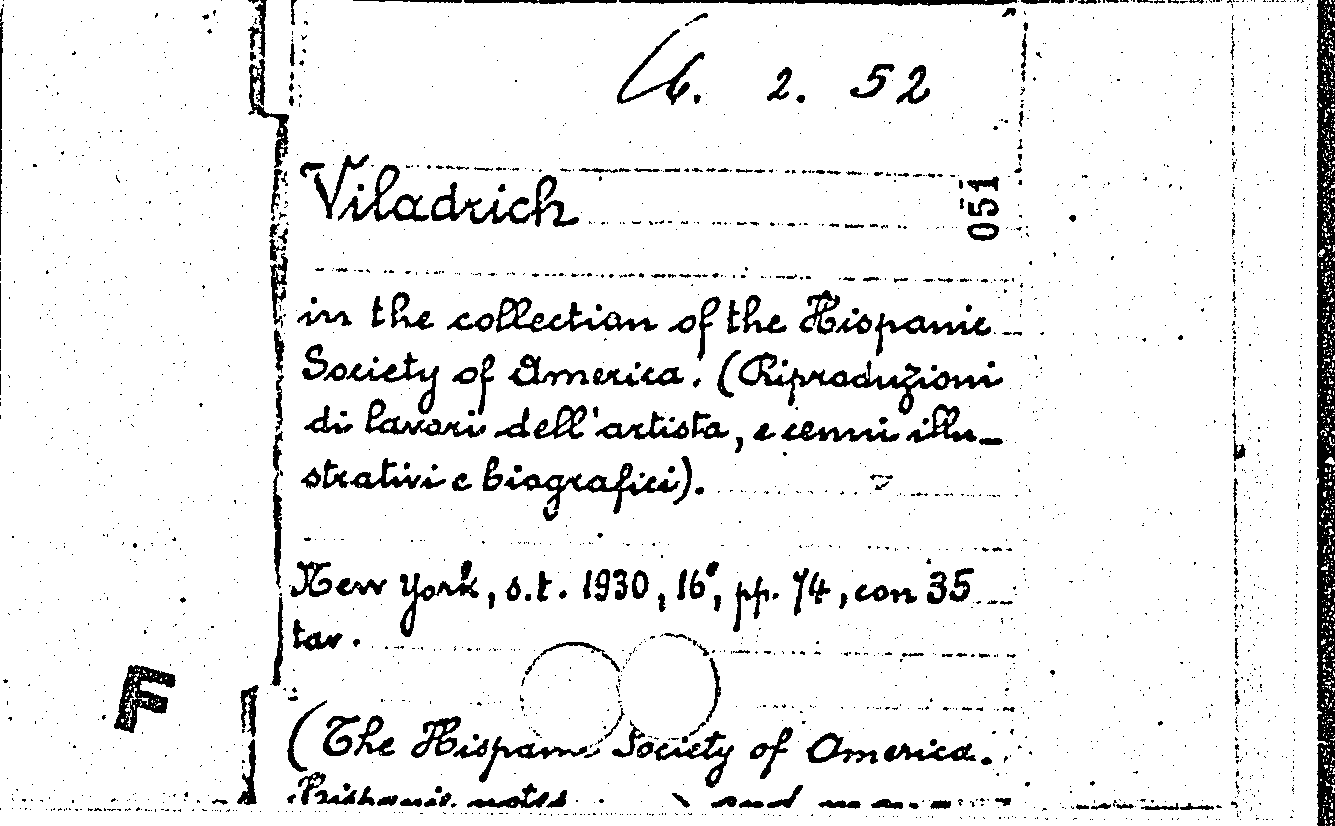 6. 2. 52
Viladrich
051
in the collection of the Hispanic
Society of America. (Riproduzioni
di lavori dell'artista, e cenni illu-
strativi e biografici).
New York, s.t. 1930, 16°, pp. 74, con 35
tav.
F
(The Hispanic Society of America.
Hispanic notes and